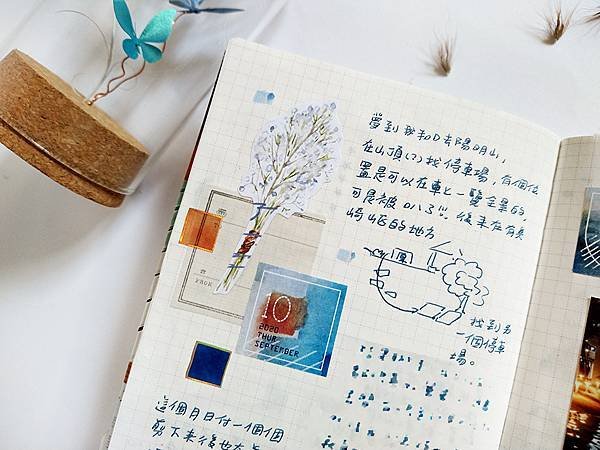 夢到我和D去陽明山，
在山頂(?)找停車場，有個位
置是可以在車上一覽全景的
可是被
後來在有夠
崎嶇的地方
找到另
一個停車
場。
FROM
10
2020
THUR
SEPTEMBER
這個月日付一個個
剪下來後也